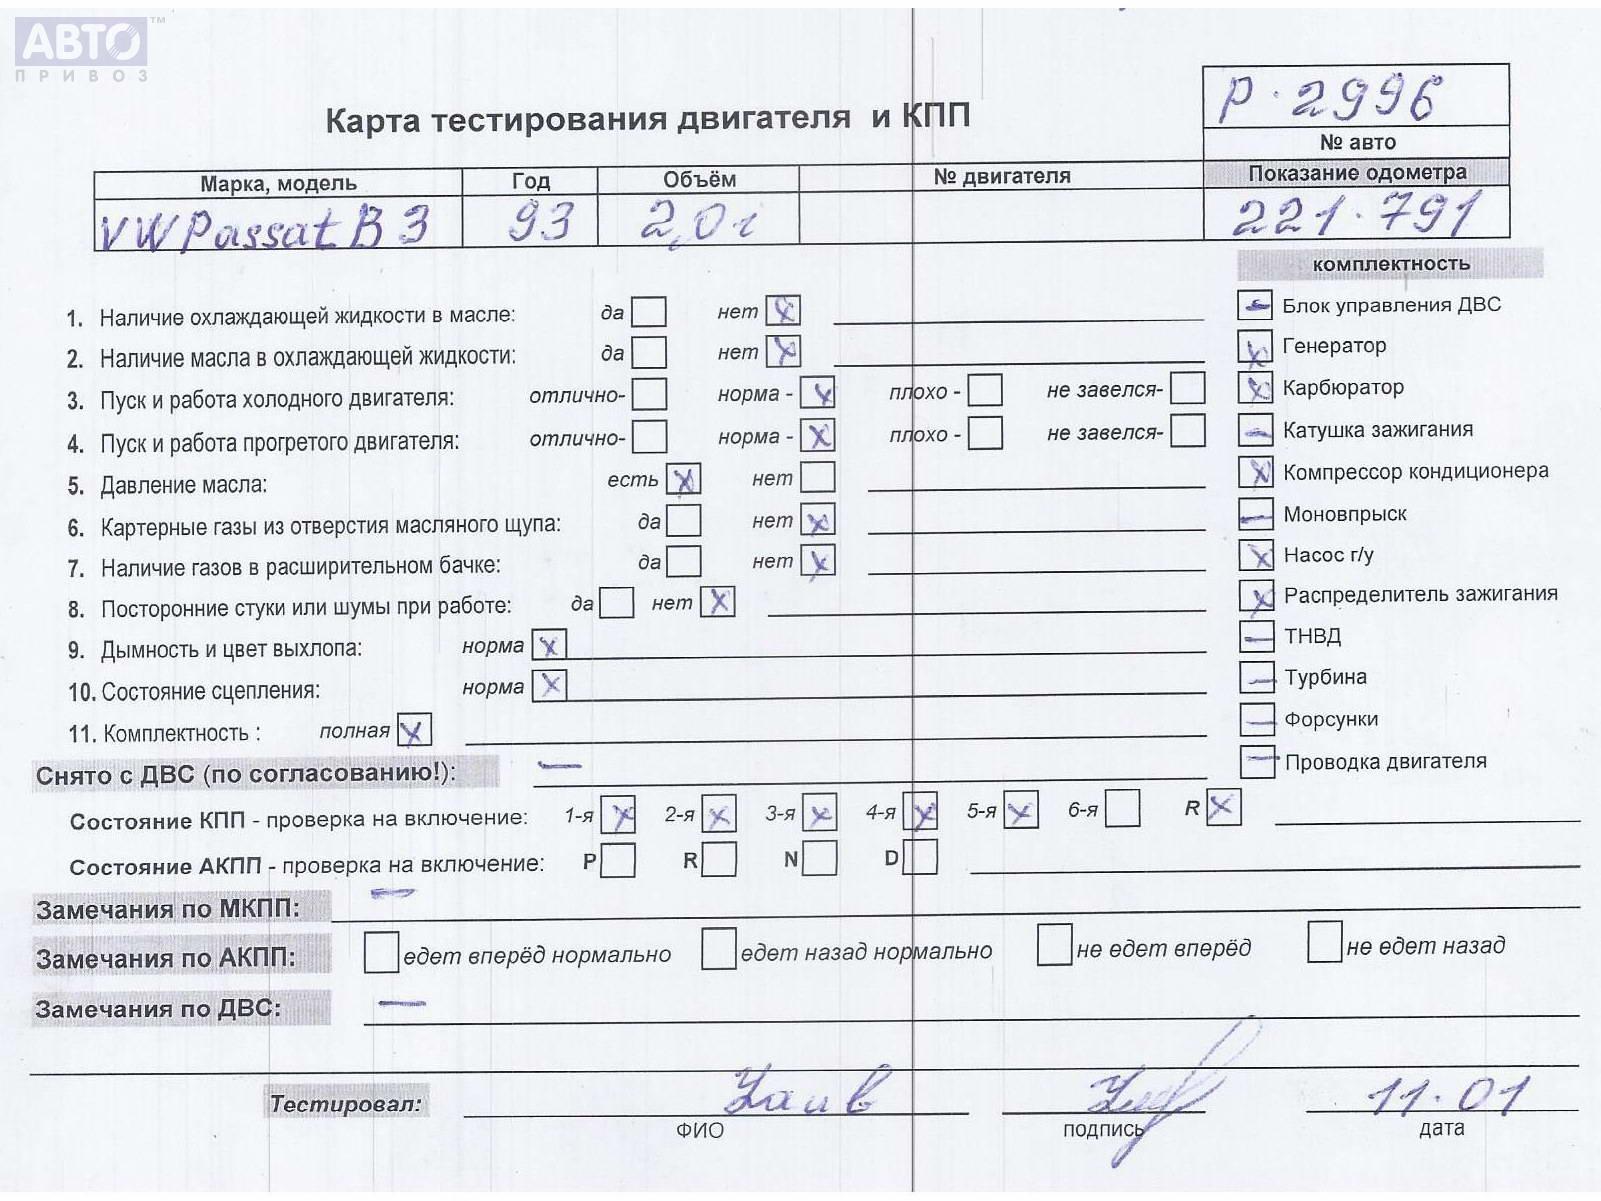 АВТО™
ПРИВОЗ
Р·2996
№ авто
Карта тестирования двигателя и КПП
Марка, модель Год Объём № двигателя Показание одометра
VW Passat B3 93 2,0i 221·791
комплектность
1. Наличие охлаждающей жидкости в масле: да нет x Блок управления ДВС
2. Наличие масла в охлаждающей жидкости: да нет x Генератор
3. Пуск и работа холодного двигателя: отлично- норма - x плохо - не завелся- Карбюратор
4. Пуск и работа прогретого двигателя: отлично- норма - x плохо - не завелся- Катушка зажигания
5. Давление масла: есть x нет Компрессор кондиционера
6. Картерные газы из отверстия масляного щупа: да нет x Моновпрыск
7. Наличие газов в расширительном бачке: да нет x Насос г/у
8. Посторонние стуки или шумы при работе: да нет x Распределитель зажигания
9. Дымность и цвет выхлопа: норма x ТНВД
10. Состояние сцепления: норма x Турбина
11. Комплектность : полная x Форсунки
Снято с ДВС (по согласованию!): — Проводка двигателя
Состояние КПП - проверка на включение: 1-я x 2-я x 3-я x 4-я x 5-я x 6-я R x
Состояние АКПП - проверка на включение: P R N D
Замечания по МКПП: —
Замечания по АКПП: едет вперёд нормально едет назад нормально не едет вперёд не едет назад
Замечания по ДВС: —
Тестировал: 11·01
ФИО подпись дата